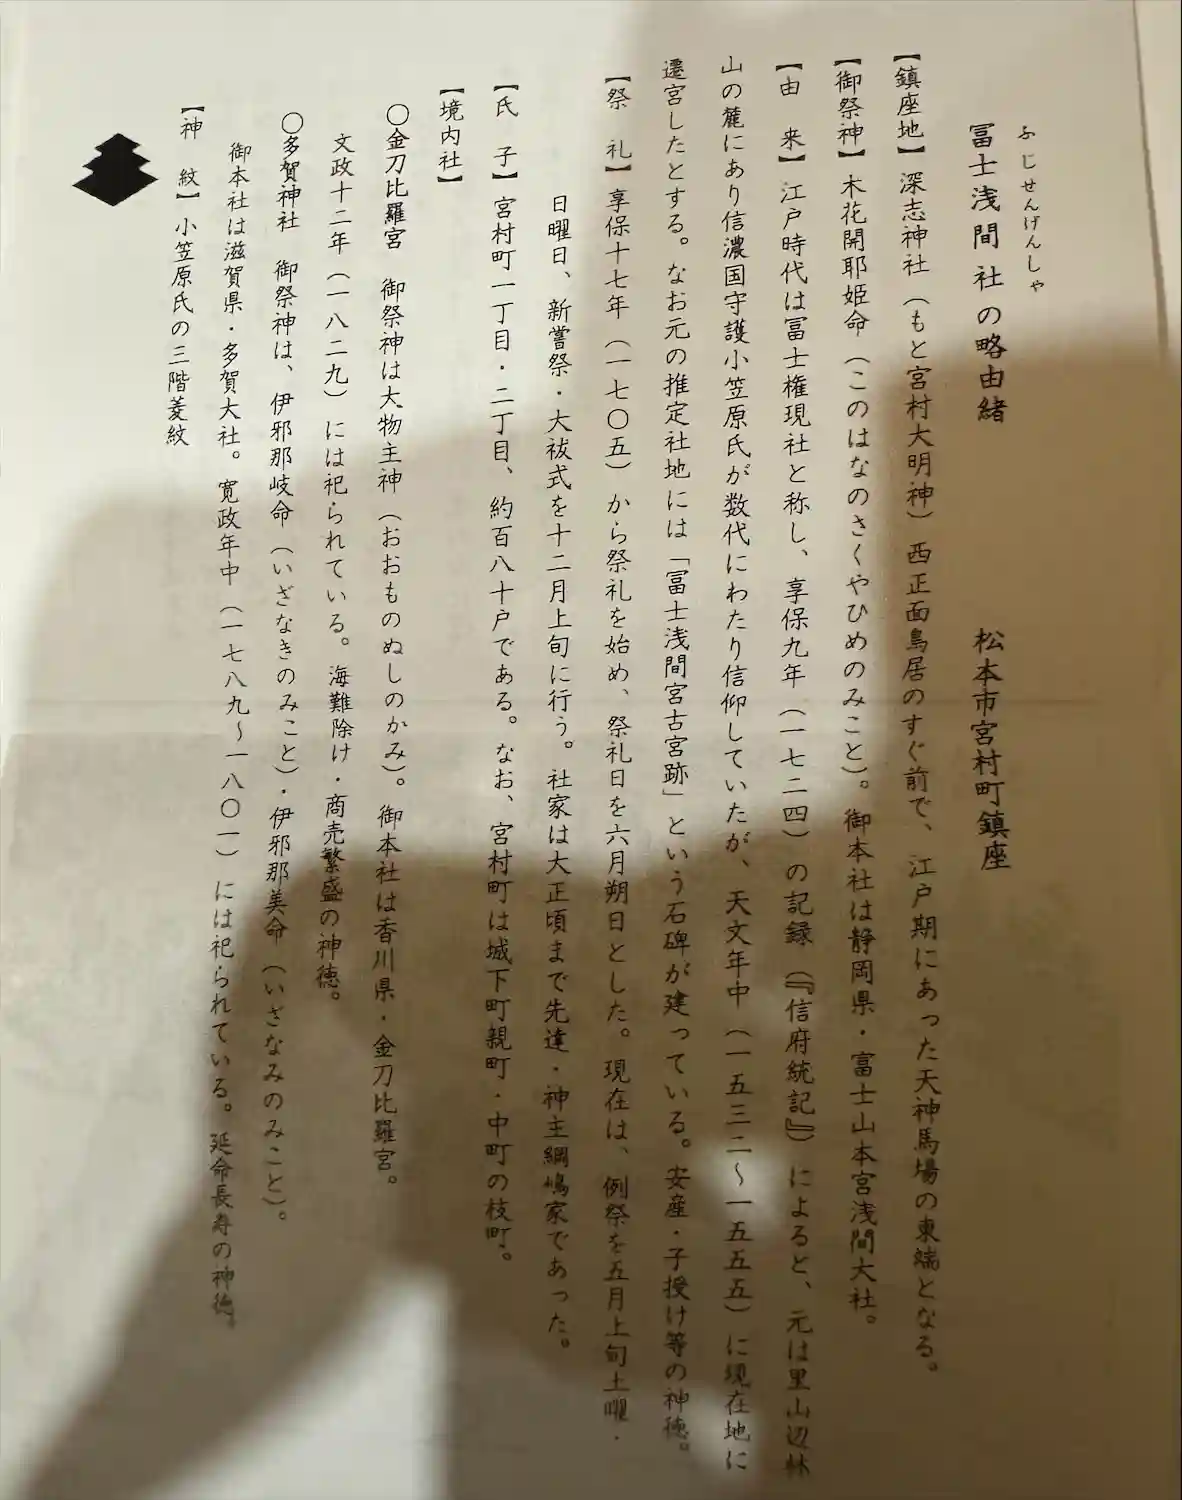 ふじせんげんしゃ
冨士浅間社の略由緒　松本市宮村町鎮座
【鎮座地】深志神社（もと宮村大明神）西正面鳥居のすぐ前で、江戸期にあった天神馬場の東端となる。
【御祭神】木花開耶姫命（このはなのさくやひめのみこと）。御本社は静岡県・富士山本宮浅間大社。
【由　来】江戸時代は冨士権現社と称し、享保九年（一七二四）の記録（『信府統記』）によると、元は里山辺林
山の麓にあり信濃国守護小笠原氏が数代にわたり信仰していたが、天文年中（一五三二〜一五五五）に現在地に
遷宮したとする。なお元の推定社地には「冨士浅間宮古宮跡」という石碑が建っている。安産・子授け等の神徳。
【祭　礼】享保十七年（一七〇五）から祭礼を始め、祭礼日を六月朔日とした。現在は、例祭を五月上旬土曜・
日曜日、新嘗祭・大祓式を十二月上旬に行う。社家は大正頃まで先達・神主綱嶋家であった。
【氏　子】宮村町一丁目・二丁目、約百八十戸である。なお、宮村町は城下町親町・中町の枝町。
【境内社】
〇金刀比羅宮　御祭神は大物主神（おおものぬしのかみ）。御本社は香川県・金刀比羅宮。
文政十二年（一八二九）には祀られている。海難除け・商売繁盛の神徳。
〇多賀神社　御祭神は、伊邪那岐命（いざなきのみこと）・伊邪那美命（いざなみのみこと）。
御本社は滋賀県・多賀大社。寛政年中（一七八九〜一八〇一）には祀られている。延命長寿の神徳。
【神　紋】小笠原氏の三階菱紋